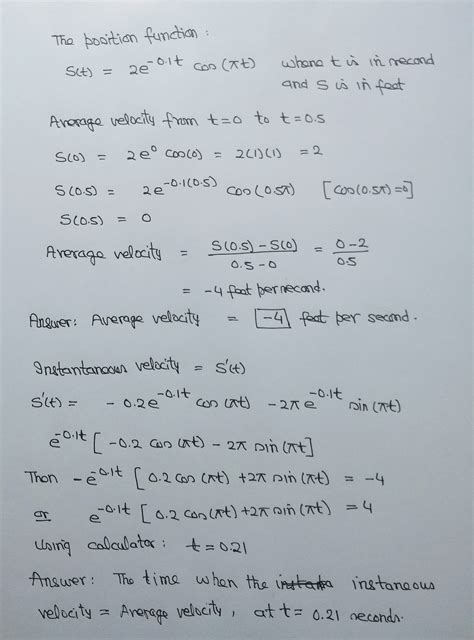 The position function :
S(t) = 2e^-0.1t cos (πt) where t is in second
and S is in feet
Average velocity from t=0 to t=0.5
S(0) = 2e^0 cos(0) = 2(1)(1) = 2
S(0.5) = 2e^-0.1(0.5) cos(0.5π) [cos(0.5π)=0]
S(0.5) = 0
Average velocity = S(0.5)-S(0) / 0.5-0 = 0-2 / 0.5
= -4 feet per second.
Answer: Average velocity = -4 feet per second.
Instantanous velocity = S'(t)
S'(t) = - 0.2e^-0.1t cos (πt) - 2π e^-0.1t sin (πt)
e^-0.1t [ -0.2 cos (πt) - 2π sin (πt)]
Then -e^-0.1t [ 0.2 cos (πt) +2π sin (πt) = -4
or e^-0.1t [ 0.2 cos (πt) +2π sin (πt) = 4
Using calculator : t = 0.21
Answer: The time when the instaneous
velocity = Average velocity, at t = 0.21 seconds.